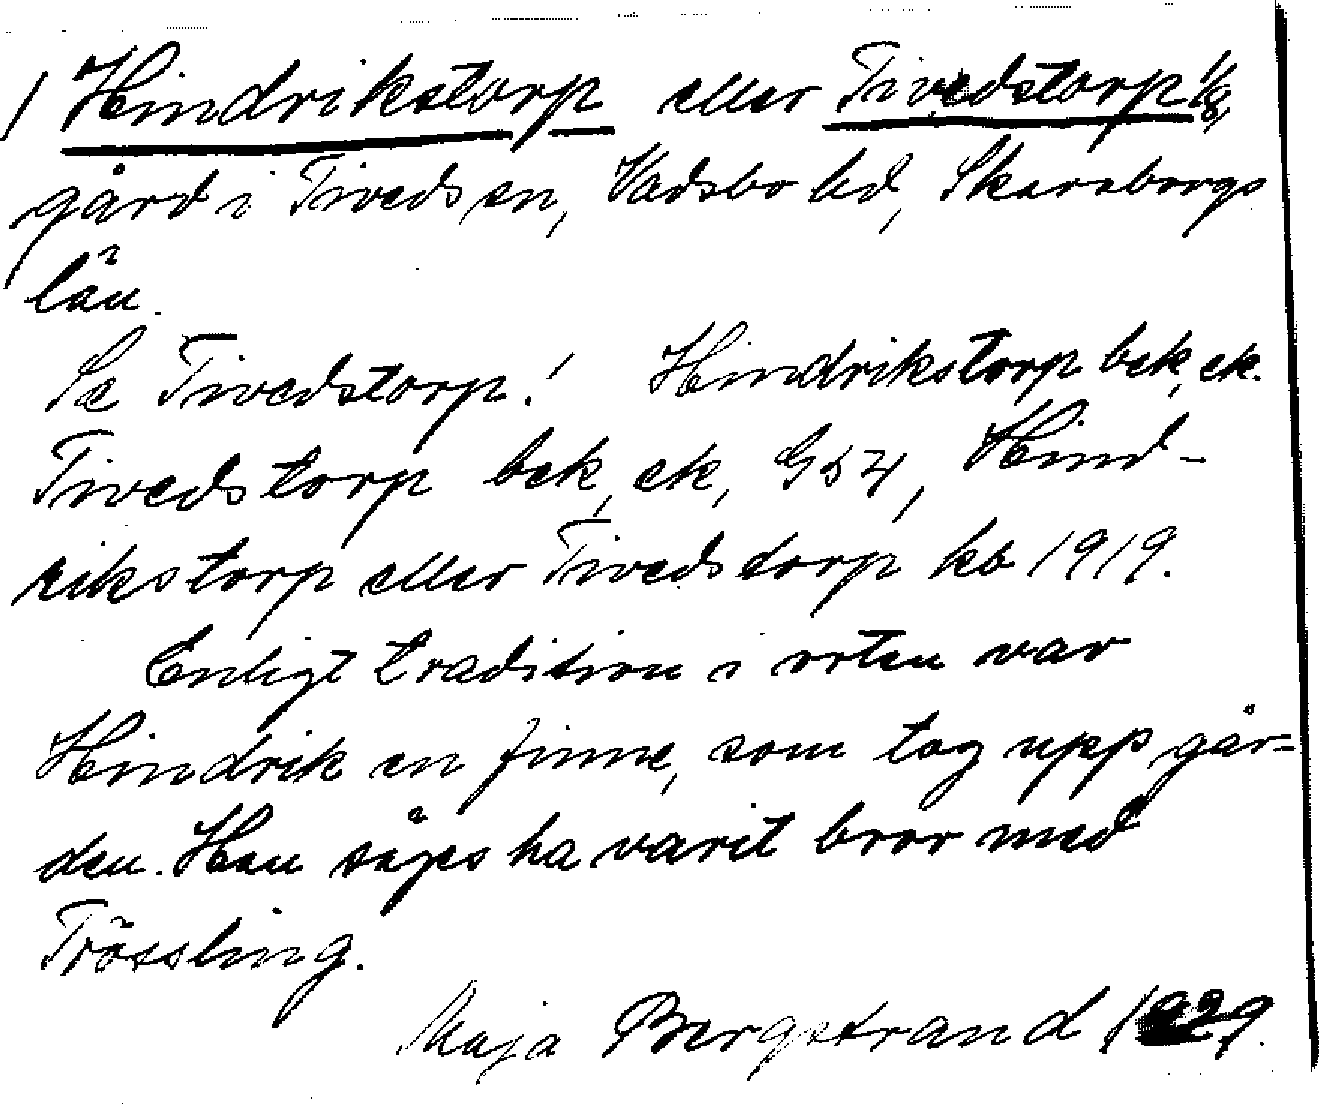 1 Hindrikstorp eller Tivedstorp 1/8,
gård i Tiveds sn, Vadsbo hd, Skaraborgs
län.
Se Tivedstorp! Hindrikstorp bek, ek.
Tivedstorp bek, ek, GS 24, Hind-
rikstorp eller Tivedstorp kb 1919.
Enligt tradition i orten var
Hindrik en finne, som tog upp går=
den. Han säges ha varit bror med
Trössling.
Maja Bergstrand 1929.